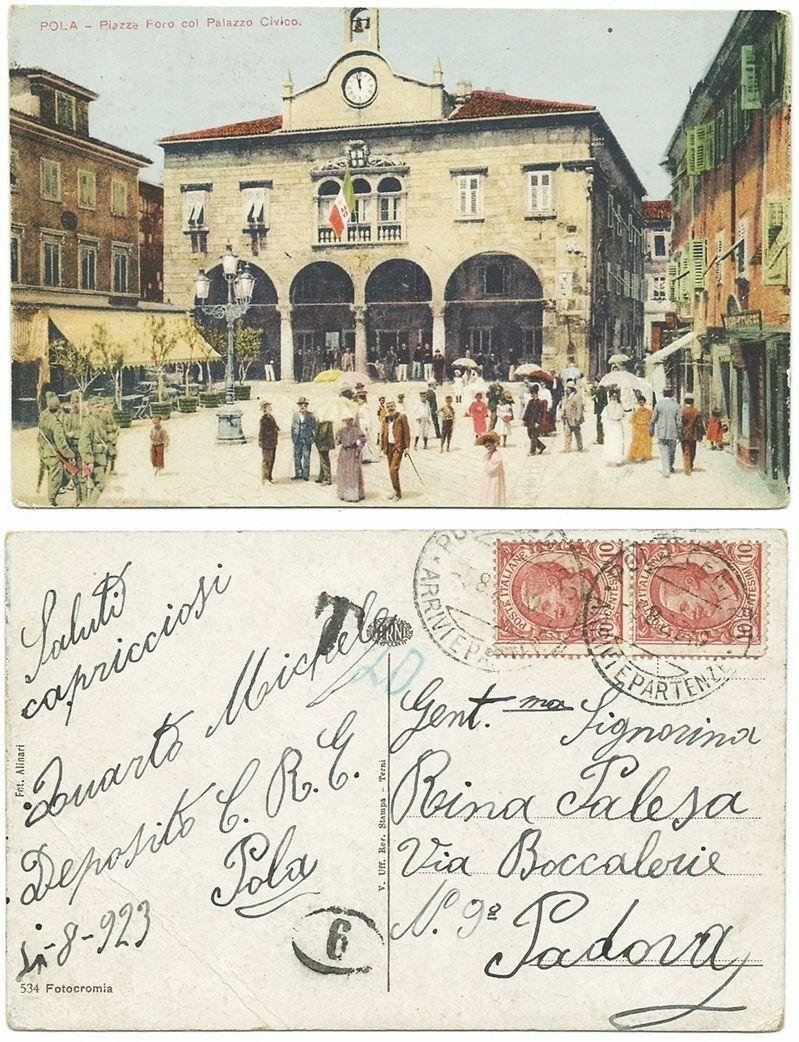 POLA – Piazza Foro col Palazzo Civico.
Saluti
capricciosi
Quarto Michele
Deposito C. R. E.
Pola
-8-923
534 Fotocromia
Fot. Alinari
V. Uff. Rev. Stampa – Terni
T
TERNI
20
6
POSTE ITALIANE
10
10
POSTE ITALIANE
10
10
ARRIVI E PAR
ARRIVI E PARTENZE
Gent.ma Signorina
Rina Palesa
Via Boccalerie
N.º 9ª
Padova